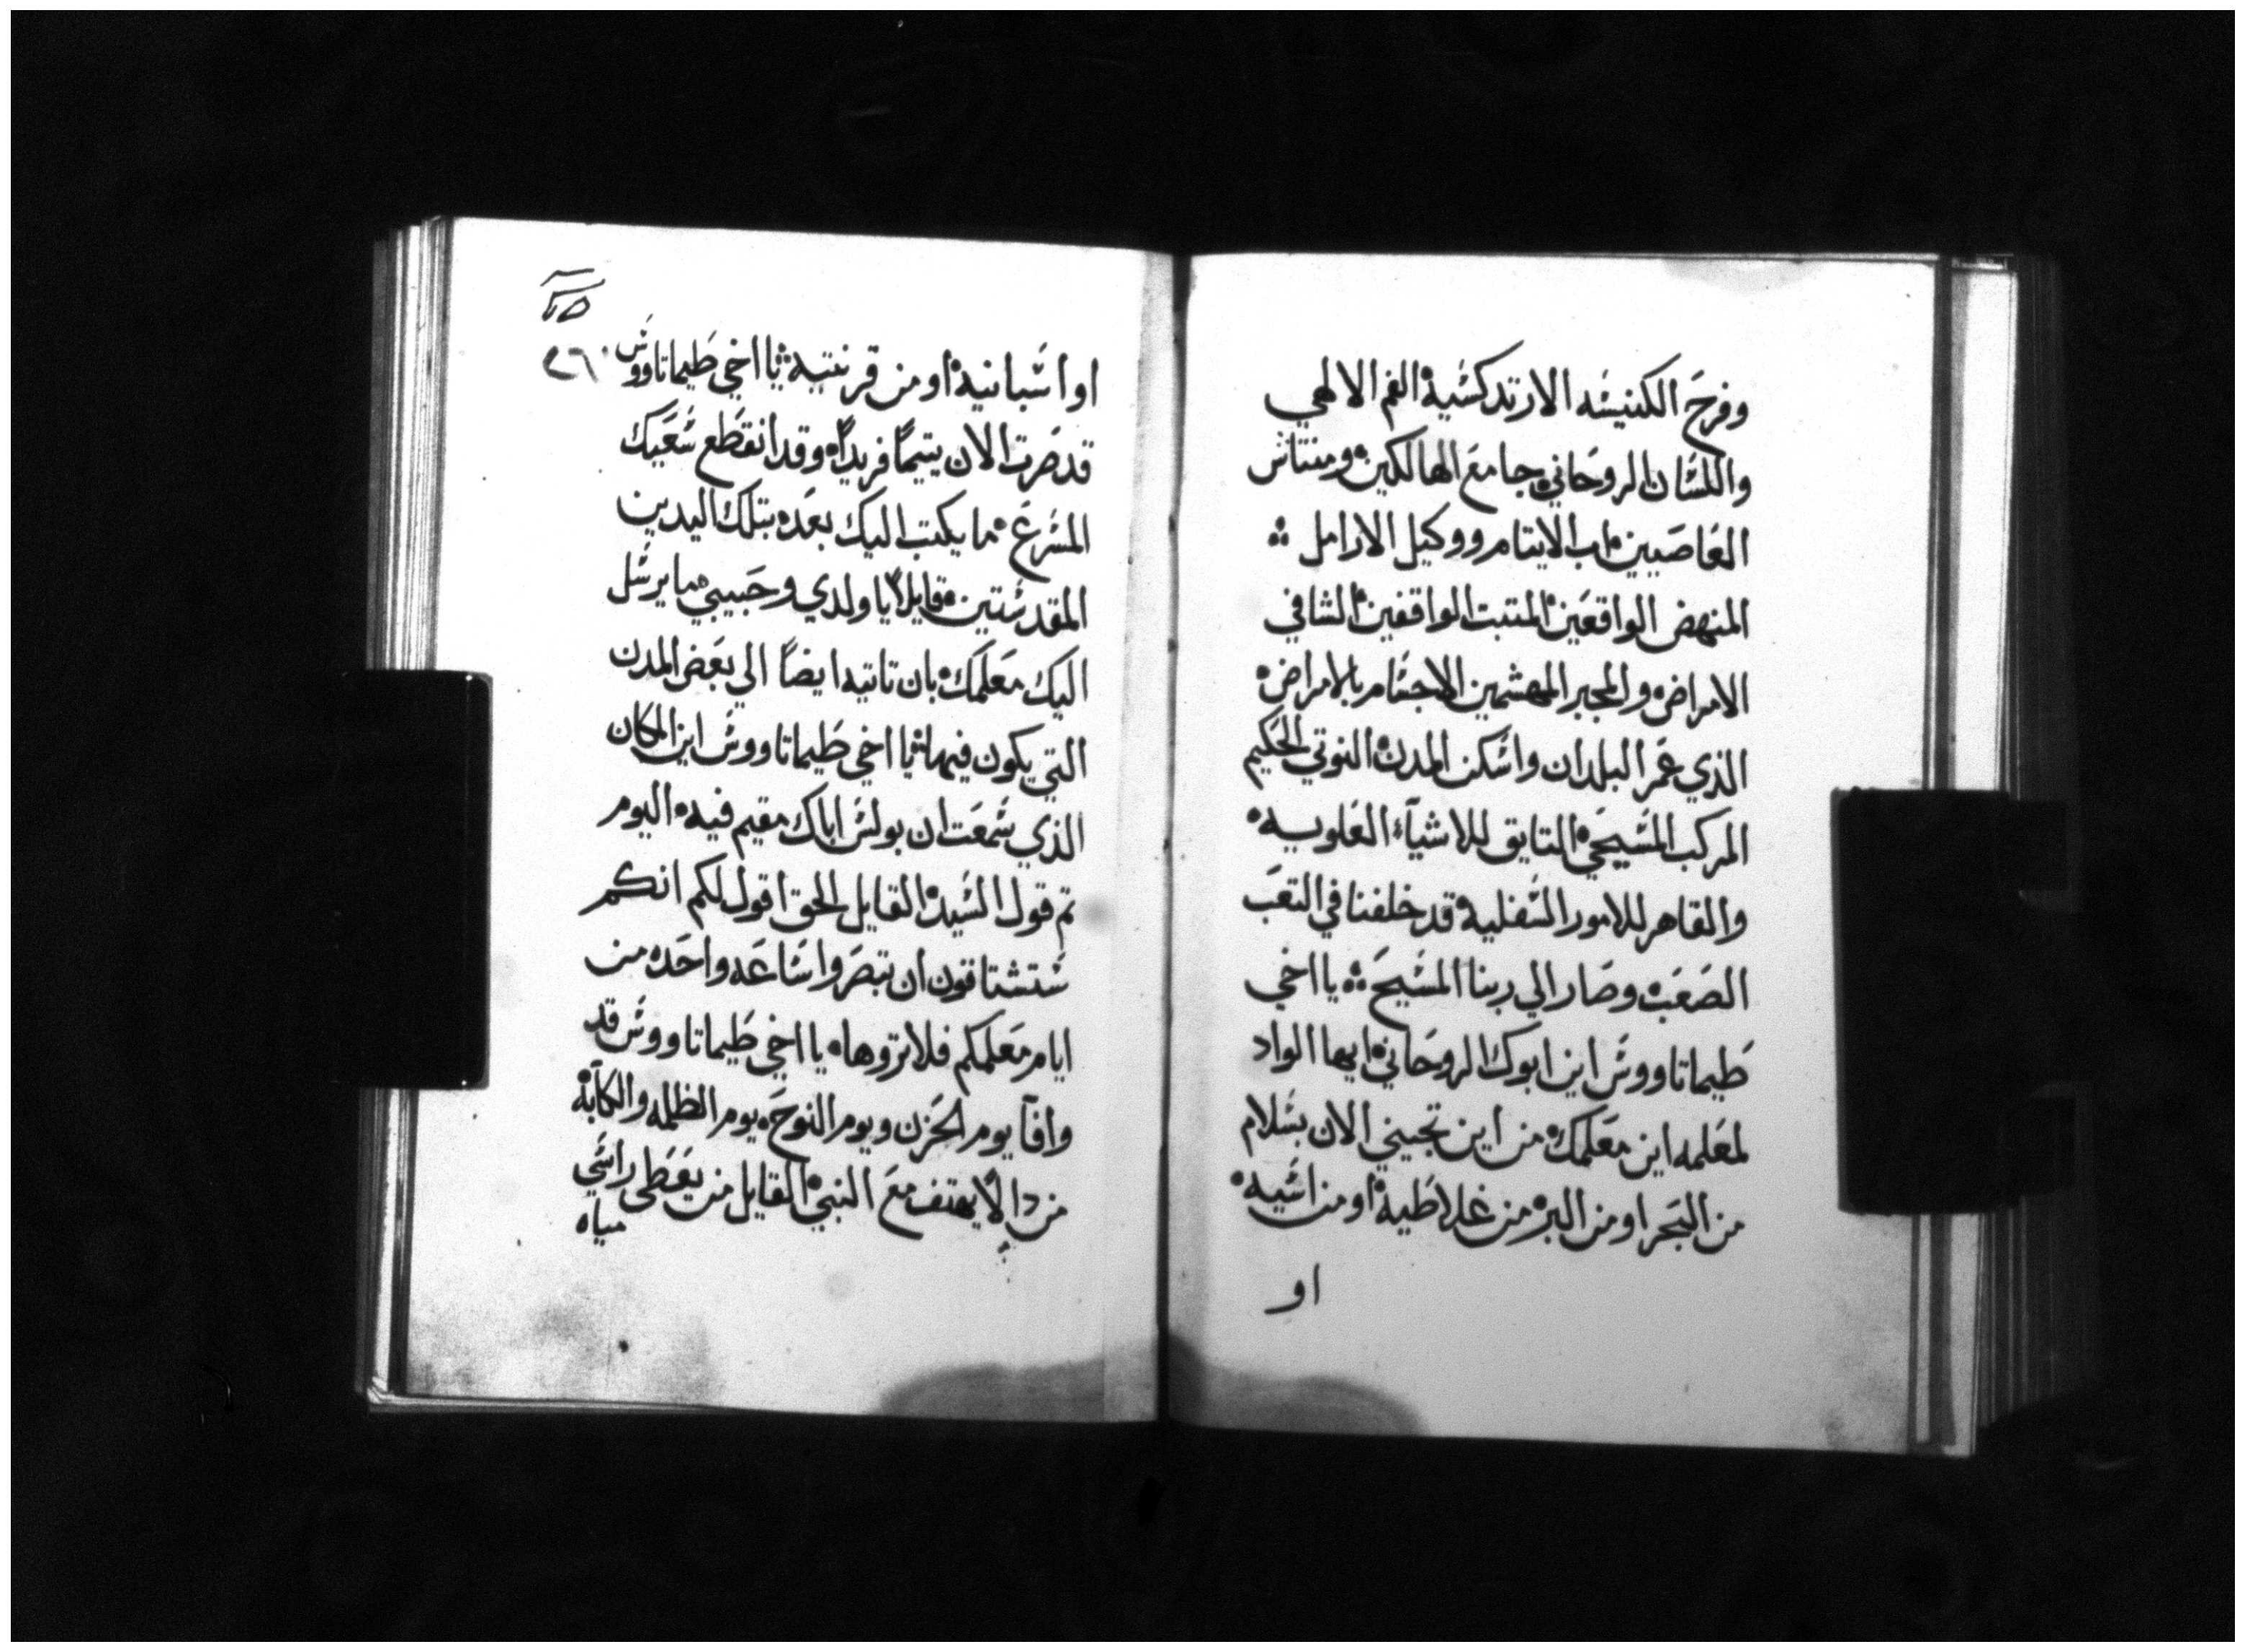 وفرح الكنيسه الارتدكسية الفم الالهي
واللسان الروحاني جامع الهالكين ومنتاش
العاصيين اب الايتام ووكيل الارامل
المنهض الواقعين المتبت الواقفين الشافي
الامراض والمجبر المهشمين الاجسام بالامراض
الذي عمر البلدان واسكن المدن النوتي الحكيم
المركب المسيحي التايق للاشيآء العلويه
والقاهر للامور السفليه قد خلفنا في التعب
الصعب وصار الي ربنا المسيح يا اخي
طيماتاووس اين ابوك الروحاني ايها الواد
لمعلمه اين معلمك من اين تجيني الان بسلام
من البحر او من البر من غلاطية او من اسيه
او
٢٦
او اسبانية او من قرنتيه يا اخي طيماتاووس
قد صرت الان يتيمًا فريدًا وقد انقطع سعيك
المسرع ما يكتب اليك بعده بتلك اليدين
المقدستين قايلًا يا ولدي وحبيبي ما يرسل
اليك معلمك بان تاتيه ايضًا الي بعض المدن
التي يكون فيها يا اخي طيماتاووس اين المكان
الذي سمعت ان بولس اباك مقيم فيه اليوم
تم قول السيد القايل الحق اقول لكم انكم
ستشتاقون ان تبصروا ساعه واحده من
ايام معلمكم فلا تروها يا اخي طيماتاووس قد
وافآ يوم الحزن ويوم النوح يوم الظلمه والكآبة
من دا لا يهتف مع النبي القايل من يعطى راسي
مياه